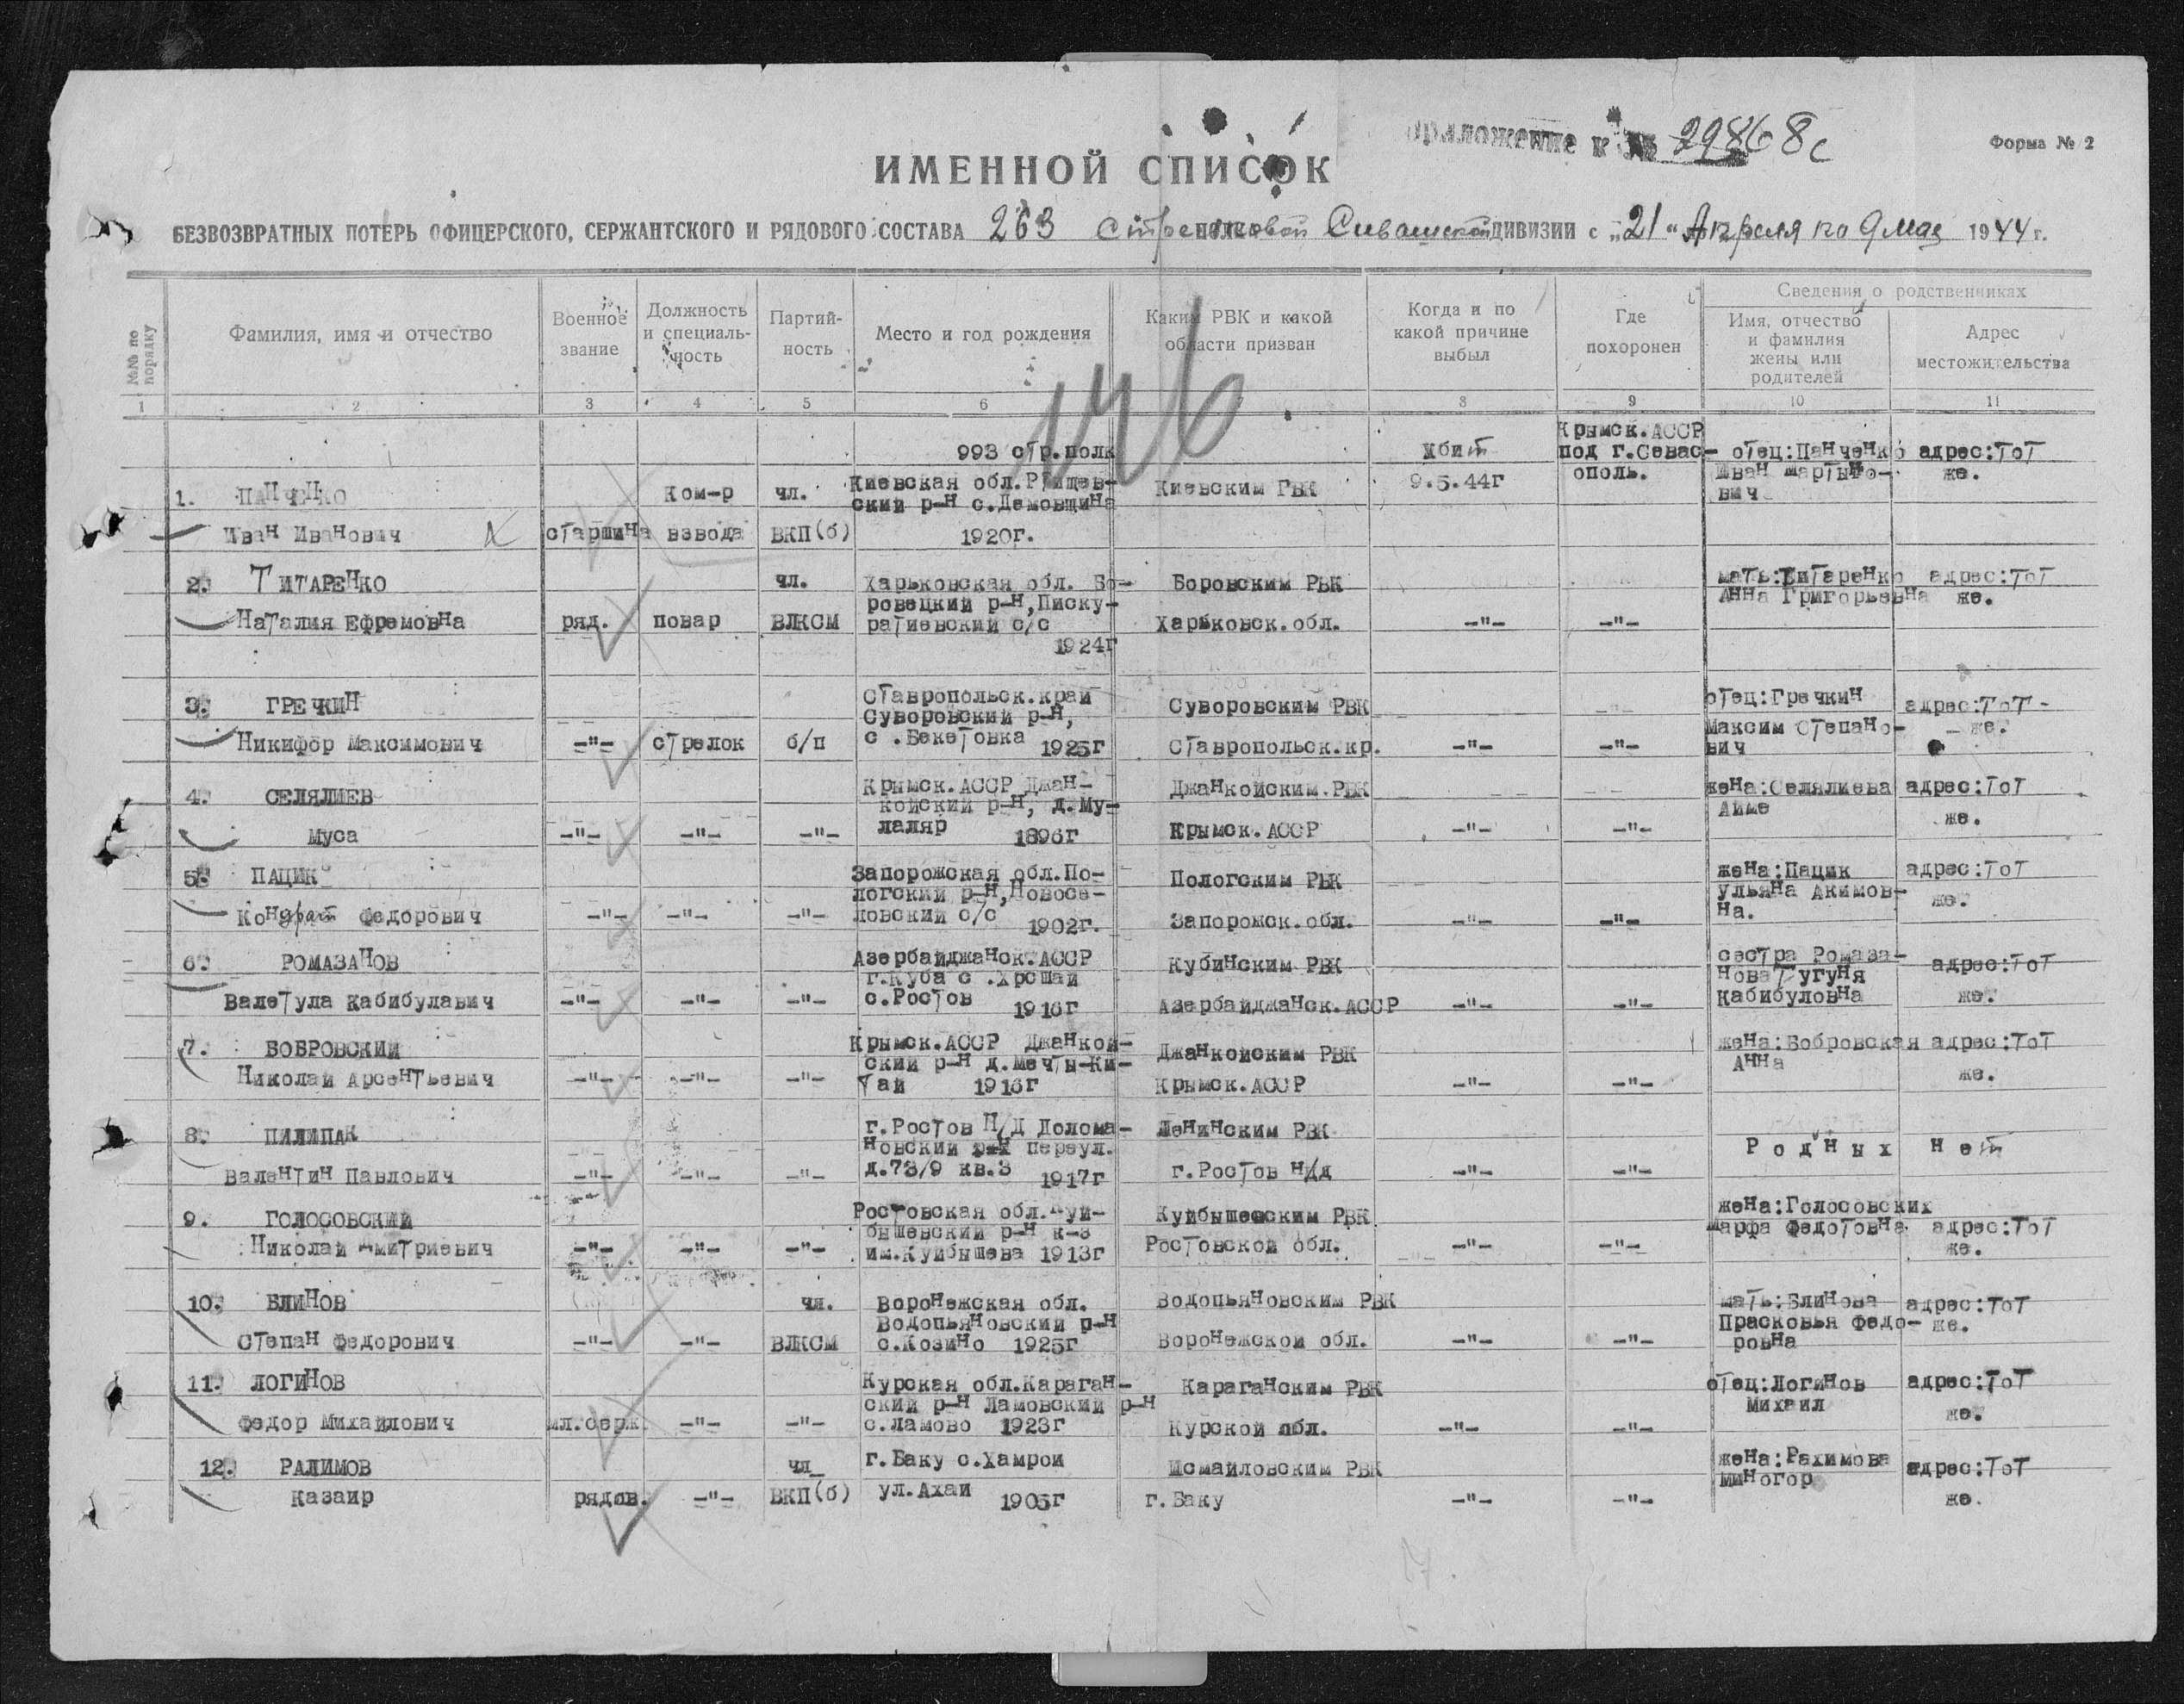 Приложение к № 29868с
Форма № 2
ИМЕННОЙ СПИСОК
БЕЗВОЗВРАТНЫХ ПОТЕРЬ ОФИЦЕРСКОГО, СЕРЖАНТСКОГО И РЯДОВОГО СОСТАВА 263 стрелковой Сивашской ДИВИЗИИ с „21“ Апреля по 9 мая 1944 г.
№№ по порядку
Фамилия, имя и отчество
Военное звание
Должность и специальность
Партийность
Место и год рождения
Каким РВК и какой области призван
Когда и по какой причине выбыл
Где похоронен
Сведения о родственниках
Имя, отчество и фамилия жены или родителей
Адрес местожительства
1 2 3 4 5 6 8 9 10 11
146
993 стр.полк
1. ПАНЧЕНКО
Иван Иванович
старшина
Ком-р
взвода
чл.
ВКП(б)
Киевская обл.Ржищев-
ский р-н с.Демовщина
1920г.
Киевским ГВК
убит
9.5.44г
Крымск.АССР
под г.Севас-
ополь.
отец:Панченко
Иван Марты-
вич
адрес:тот
же.
2. ТИТАРЕНКО
Наталия Ефремовна
ряд.
повар
чл.
ВЛКСМ
Харьковская обл. Бо-
ровецкий р-н,Писку-
ратиевский с/с
1924г
Боровским РВК
Харьковск.обл.
-"-
-"-
мать:Титаренко
Анна Григорьевна
адрес:тот
же.
3. ГРЕЧКИН
Никифор Максимович
-"-
стрелок
б/п
Ставропольск.край
Суворовский р-н,
с .Бекетовка 1925г
Суворовским РВК
Ставропольск.кр.
-"-
-"-
отец:Гречкин
Максим Степано-
вич
адрес:тот-
же.
4. СЕЛЯЛИЕВ
Муса
-"-
-"-
-"-
Крымск.АССР Джан-
койский р-н, д.Му-
лаляр 1896г
Джанкойским.РВК
Крымск.АССР
-"-
-"-
жена:Селялиева
Айме
адрес:тот
же.
5. ПАЦИК
Кондрат Федорович
-"-
-"-
-"-
Запорожская обл.По-
логский р-н,Новосе-
ловский с/с 1902г.
Пологским РВК
Запорожск.обл.
-"-
-"-
жена:Пацик
Ульяна Акимов-
на.
адрес:тот
же.
6. РОМАЗАНОВ
Валетула Кабибулавич
-"-
-"-
-"-
Азербайджанск.АССР
г.Куба с .Хрошай
с.Ростов 1916г
Кубинским РВК
Азербайджанск.АССР
-"-
-"-
сестра Ромаза-
нова Тугуня
Кабибуловна
адрес:тот
же.
7. БОБРОВСКИЙ
Николай Арсентьевич
-"-
-"-
-"-
Крымск.АССР Джанкой-
ский р-н д.Мечты-Ки-
тай 1916г
Джанкойским РВК
Крымск.АССР
-"-
-"-
жена:Бобровская
Анна
адрес:тот
же.
8. ПИЛИПАК
Валентин Павлович
-"-
-"-
-"-
г.Ростов Н/Д Долома-
новский р-н переул.
д.73/9 кв.3 1917г
Ленинским РВК
г.Ростов н/д
-"-
-"-
Родных нет
9. ГОЛОСОВСКИЙ
Николай Дмитриевич
-"-
-"-
-"-
Ростовская обл.Куй-
бышевский р-н к-з
им.Куйбышева 1913г
Куйбышевским РВК
Ростовской обл.
-"-
-"-
жена:Голосовских
Марфа Федотовна
адрес:тот
же.
10. БЛИНОВ
Степан Федорович
-"-
-"-
чл.
ВЛКСМ
Воронежская обл.
Водопьяновский р-н
с.Козино 1925г
Водопьяновским РВК
Воронежской обл.
-"-
-"-
мать:Блинова
Прасковья Федо-
ровна
адрес:тот
же.
11. ЛОГИНОВ
Федор Михайлович
мл.серж.
-"-
-"-
Курская обл.Караган-
ский р-н Ламовский р-н
с.Ламово 1923г
Караганским РВК
Курской обл.
-"-
-"-
отец:Логинов
Михаил
адрес:тот
же.
12. РАЛИМОВ
Казаир
рядов.
-"-
чл
ВКП(б)
г.Баку с.Хамрои
ул.Ахаи 1905г
Исмайловским РВК
г.Баку
-"-
-"-
жена:Рахимова
Миногор
адрес:тот
же.